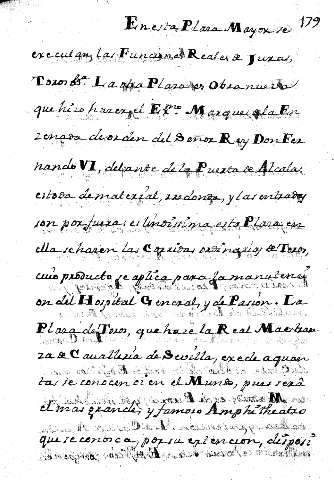 179
En esta Plaza Mayor se
executan las Funciones Reales de Juras,
Toros &c. La otra Plaza es Obra nueva
que hizo hazer el Exmo. Marques de la En
zenada de orden del Señor Rey Don Fer
nando VI, delante de la Puerta de Alcala:
es toda de material, redonda, y las entradas
son por fuera: es lindissima esta Plaza: en
ella se hazen las Corridas ordinarias de Toros,
cuio producto se aplica para la manutenci
on del Hospital General, y de Pasion. La
Plaza de Toros, que haze la Real Maestran
za de Cavalleria de Sevilla, exede a quan
tas se conocen en el Mundo, pues será
el mas grande, y famoso Amphitheatro
que se conosca, por su extencion, disposi